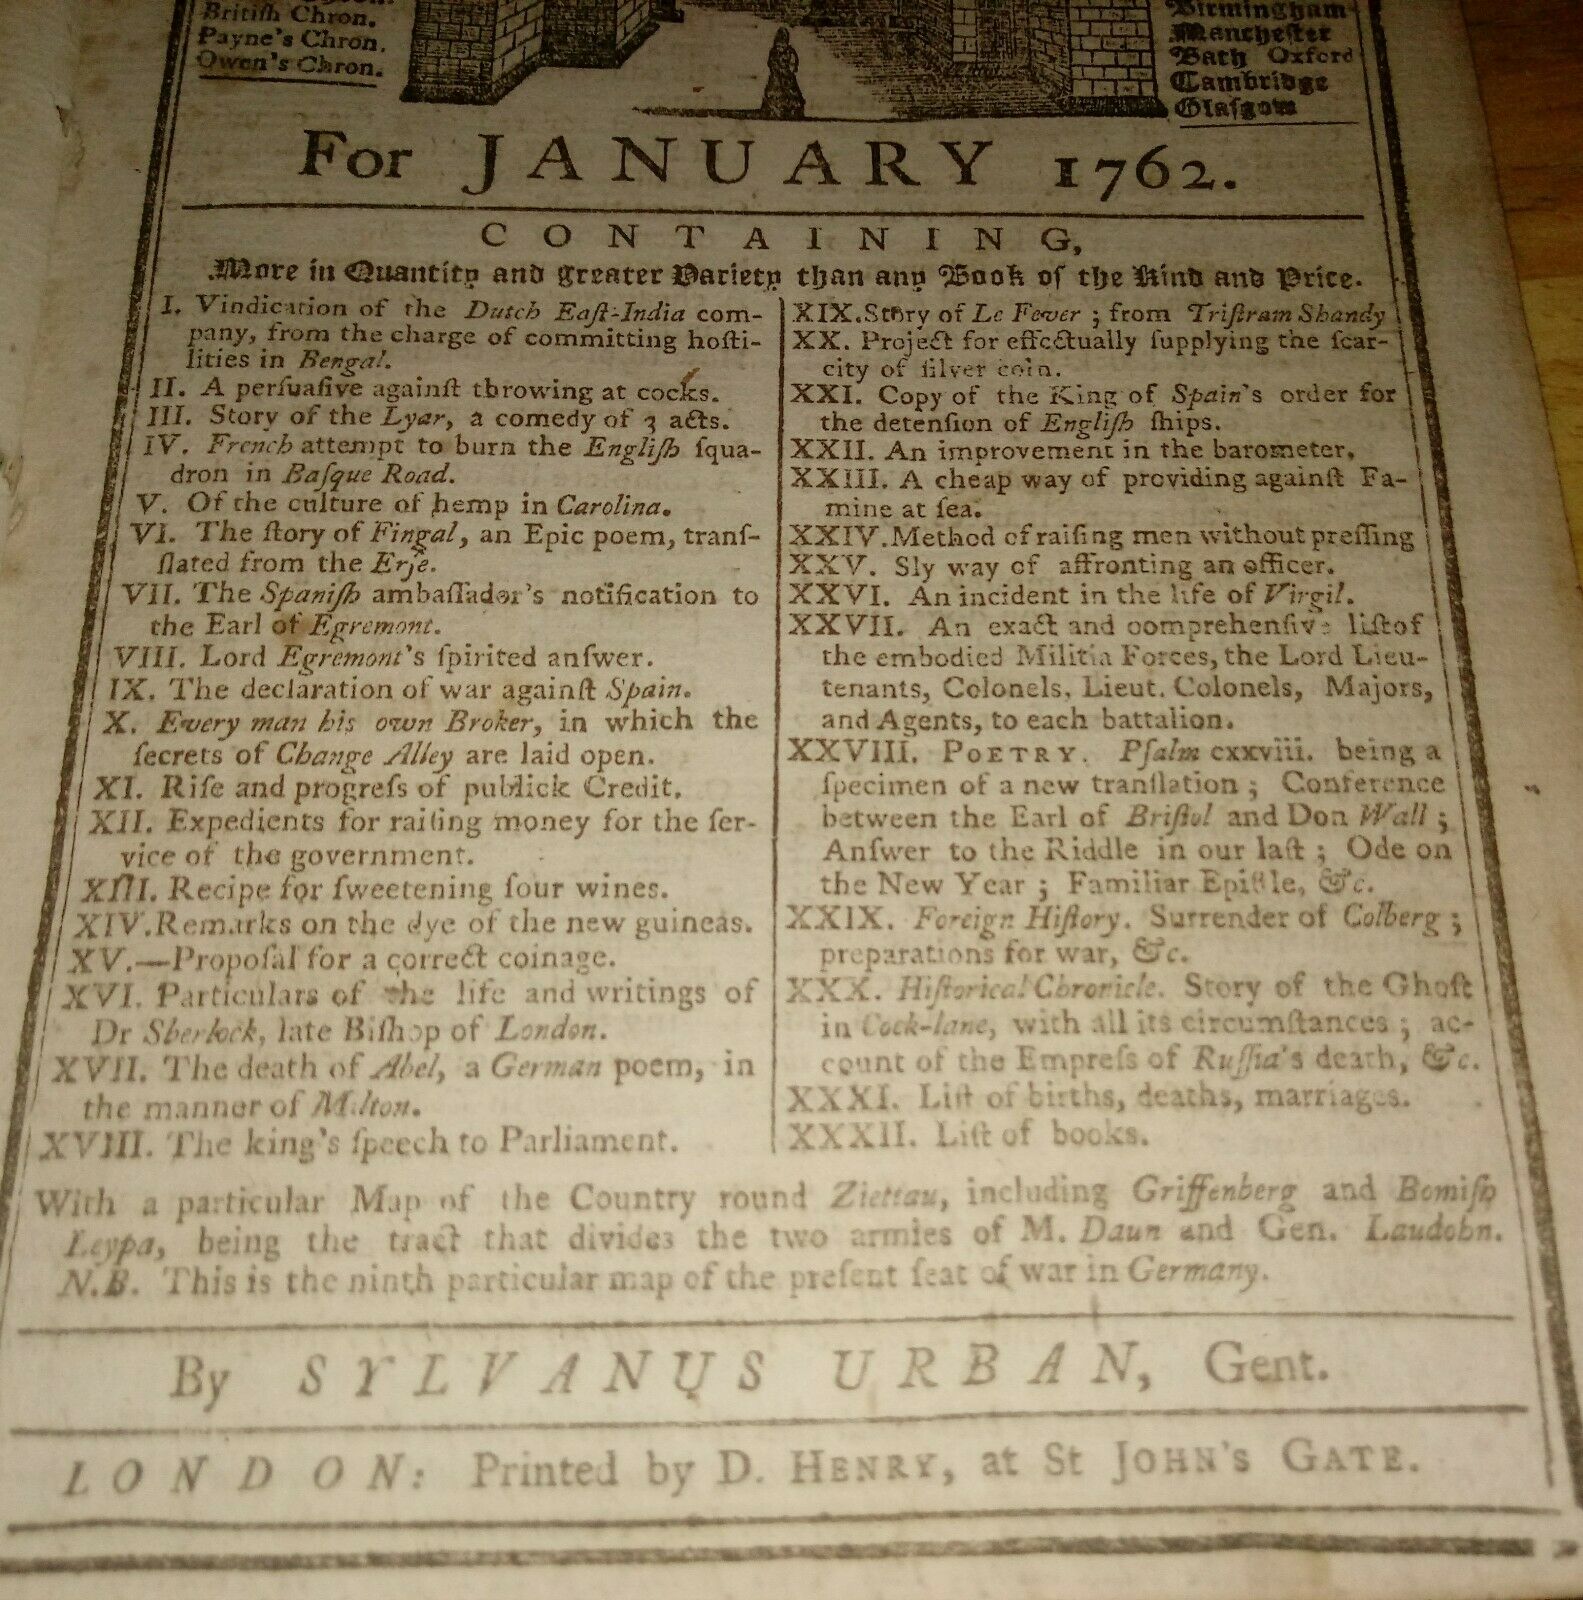 Britiſh Chron.
Payne's Chron.
Owen's Chron.
Birmingham
Mancheſter
Bath Oxford
Cambridge
Glaſgow
For JANUARY 1762.
CONTAINING,
More in Quantity and greater Variety than any Book of the Kind and Price.
I. Vindication of the Dutch Eaſt-India com-
pany, from the charge of committing hoſti-
lities in Bengal.
II. A perſuaſive againſt throwing at cocks.
III. Story of the Lyar, a comedy of 3 acts.
IV. French attempt to burn the Engliſh ſqua-
dron in Baſque Road.
V. Of the culture of hemp in Carolina.
VI. The ſtory of Fingal, an Epic poem, tranſ-
ſlated from the Erſe.
VII. The Spaniſh ambaſſador's notification to
the Earl of Egremont.
VIII. Lord Egremont's ſpirited anſwer.
IX. The declaration of war againſt Spain.
X. Every man his own Broker, in which the
ſecrets of Change Alley are laid open.
XI. Riſe and progreſs of publick Credit.
XII. Expedients for raiſing money for the ſer-
vice of the government.
XIII. Recipe for ſweetening ſour wines.
XIV. Remarks on the dye of the new guineas.
XV.—Propoſal for a correct coinage.
XVI. Particulars of the life and writings of
Dr Sherlock, late Biſhop of London.
XVII. The death of Abel, a German poem, in
the manner of Milton.
XVIII. The king's ſpeech to Parliament.
XIX. Story of Le Fever; from Triſtram Shandy
XX. Project for effectually ſupplying the ſcar-
city of ſilver coin.
XXI. Copy of the King of Spain's order for
the detenſion of Engliſh ſhips.
XXII. An improvement in the barometer.
XXIII. A cheap way of providing againſt Fa-
mine at ſea.
XXIV. Method of raiſing men without preſſing
XXV. Sly way of affronting an officer.
XXVI. An incident in the life of Virgil.
XXVII. An exact and comprehenſive liſt of
the embodied Militia Forces, the Lord Lieu-
tenants, Colonels, Lieut. Colonels, Majors,
and Agents, to each battalion.
XXVIII. POETRY. Pſalm cxxviii. being a
ſpecimen of a new tranſlation; Conference
between the Earl of Briſtol and Don Wall;
Anſwer to the Riddle in our laſt; Ode on
the New Year; Familiar Epiſtle, &c.
XXIX. Foreign Hiſtory. Surrender of Colberg;
preparations for war, &c.
XXX. Hiſtorical Chronicle. Story of the Ghoſt
in Cock-lane, with all its circumſtances; ac-
count of the Empreſs of Ruſſia's death, &c.
XXXI. Liſt of births, deaths, marriages.
XXXII. Liſt of books.
With a particular Map of the Country round Ziettau, including Griffenberg and Bomiſh
Leypa, being the tract that divides the two armies of M. Daun and Gen. Laudohn.
N.B. This is the ninth particular map of the preſent ſeat of war in Germany.
By SYLVANUS URBAN, Gent.
LONDON: Printed by D. HENRY, at St JOHN'S GATE.